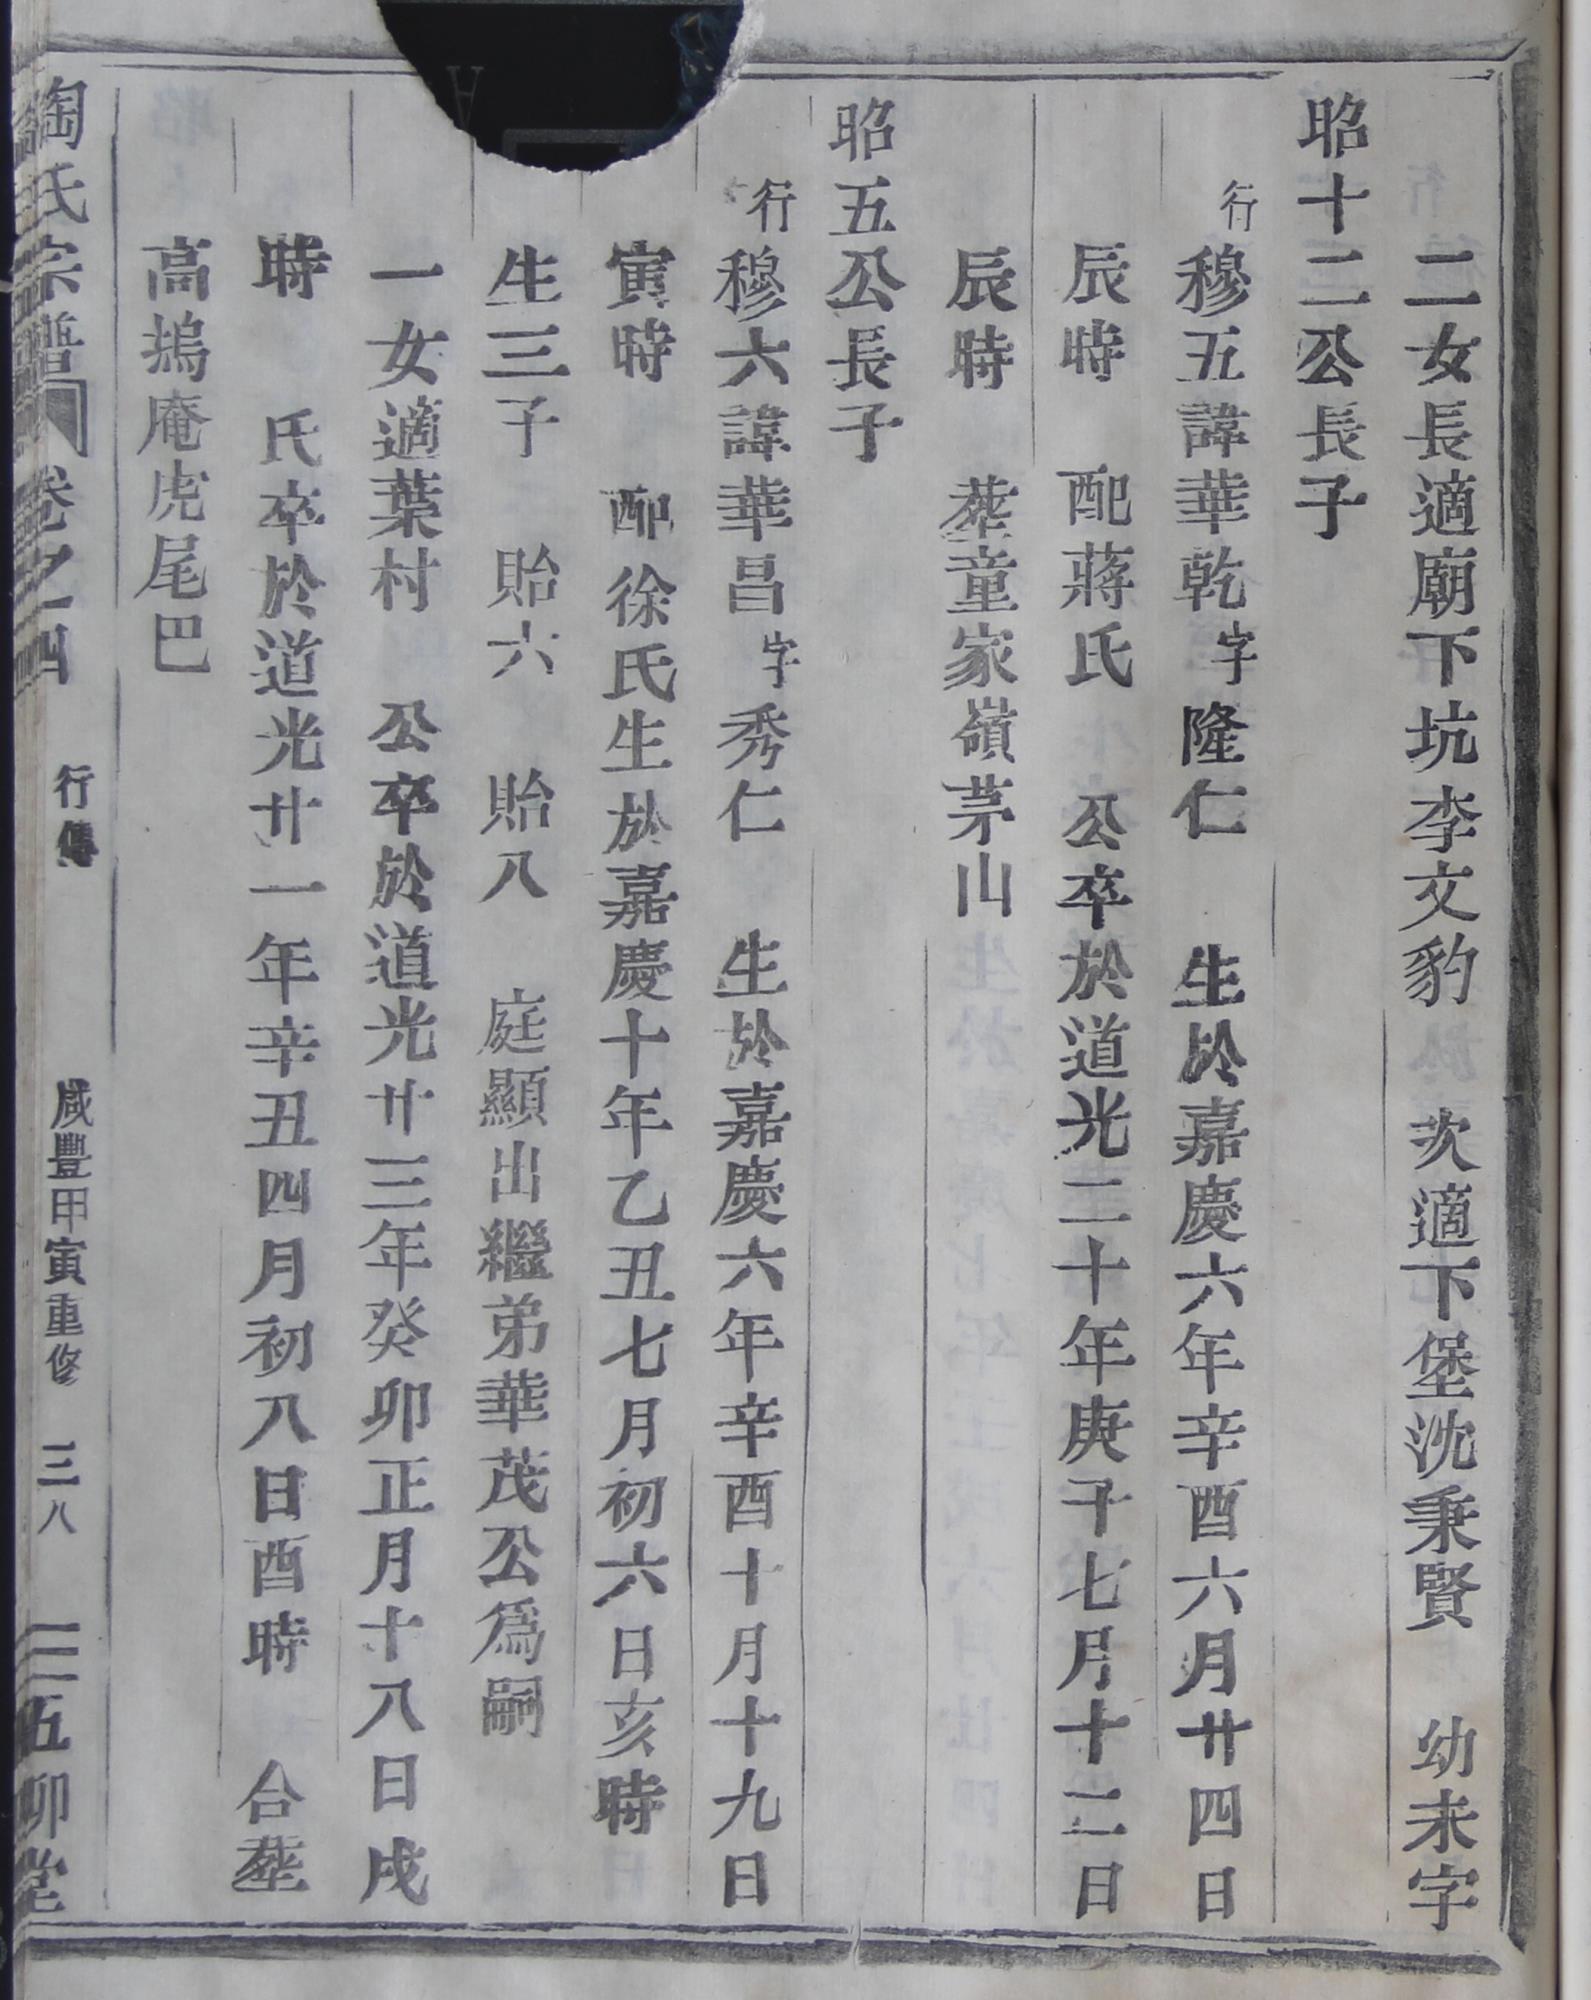 二女長適廟下坑李文豹 次適下堡沈秉賢 幼未字
昭十二公長子
行穆五諱華乾字隆仁 生於嘉慶六年辛酉六月廿四日
辰時 配蔣氏 公卒於道光二十年庚子七月十二日
辰時 塟童家嶺茅山
昭五公長子
行穆六諱華昌字秀仁 生於嘉慶六年辛酉十月十九日
寅時 配徐氏生於嘉慶十年乙丑七月初六日亥時
生三子 貽六 貽八 庭顯出繼弟華茂公爲嗣
一女適葉村 公卒於道光廿三年癸卯正月十八日戌
時 氏卒於道光廿一年辛丑四月初八日酉時 合塟
高摀庵虎尾巴
陶氏宗譜 卷之四 行傳 咸豐甲寅重修 三八 五柳堂